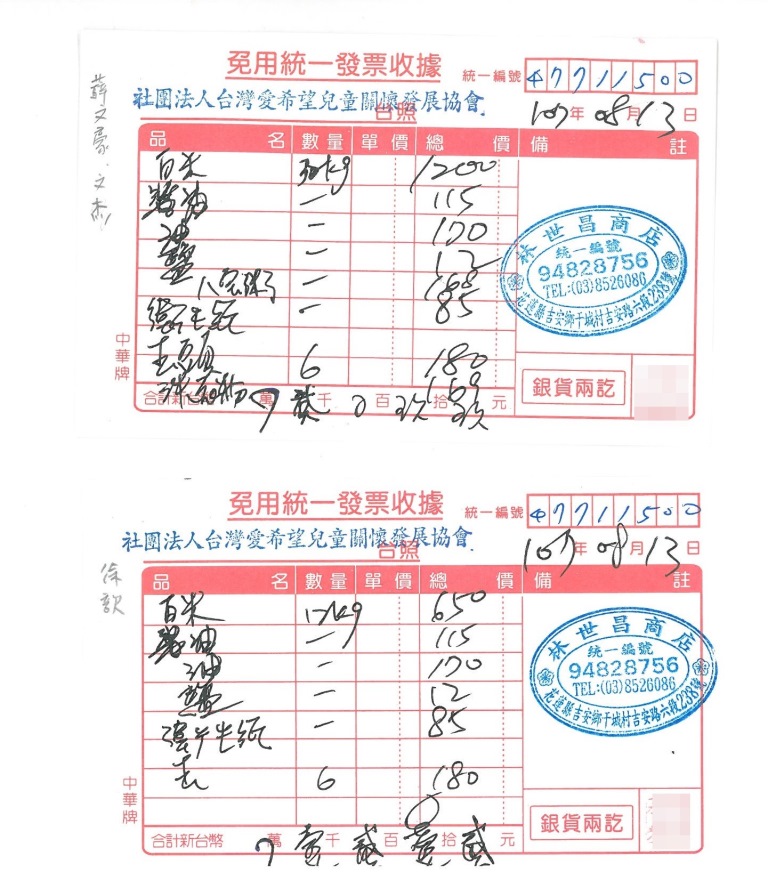 免用統一發票收據 統一編號 47711500
社團法人台灣愛希望兒童關懷發展協會 台照 107年08月13日
薛又豪、文杰
品名 數量 單價 總價 備註
白米 30kg 1200
醬油 一 115
油 一 170
鹽 一 12
八寶粥 一 168
衛生紙 一 85
6 180
洗衣粉 169
合計新台幣 萬 貳千 0百 玖拾 玖元
林世昌商店
統一編號
94828756
TEL:(03)8526086
花蓮縣吉安鄉干城村吉安路六段238號
銀貨兩訖
中華牌
免用統一發票收據 統一編號 47711500
社團法人台灣愛希望兒童關懷發展協會 台照 107年08月13日
徐歆
品名 數量 單價 總價 備註
白米 650
醬油 一 115
油 一 170
鹽 一 12
衛生紙 一 85
6 180
合計新台幣 萬 壹千 貳百 壹拾 貳元
林世昌商店
統一編號
94828756
TEL:(03)8526086
花蓮縣吉安鄉干城村吉安路六段238號
銀貨兩訖
中華牌